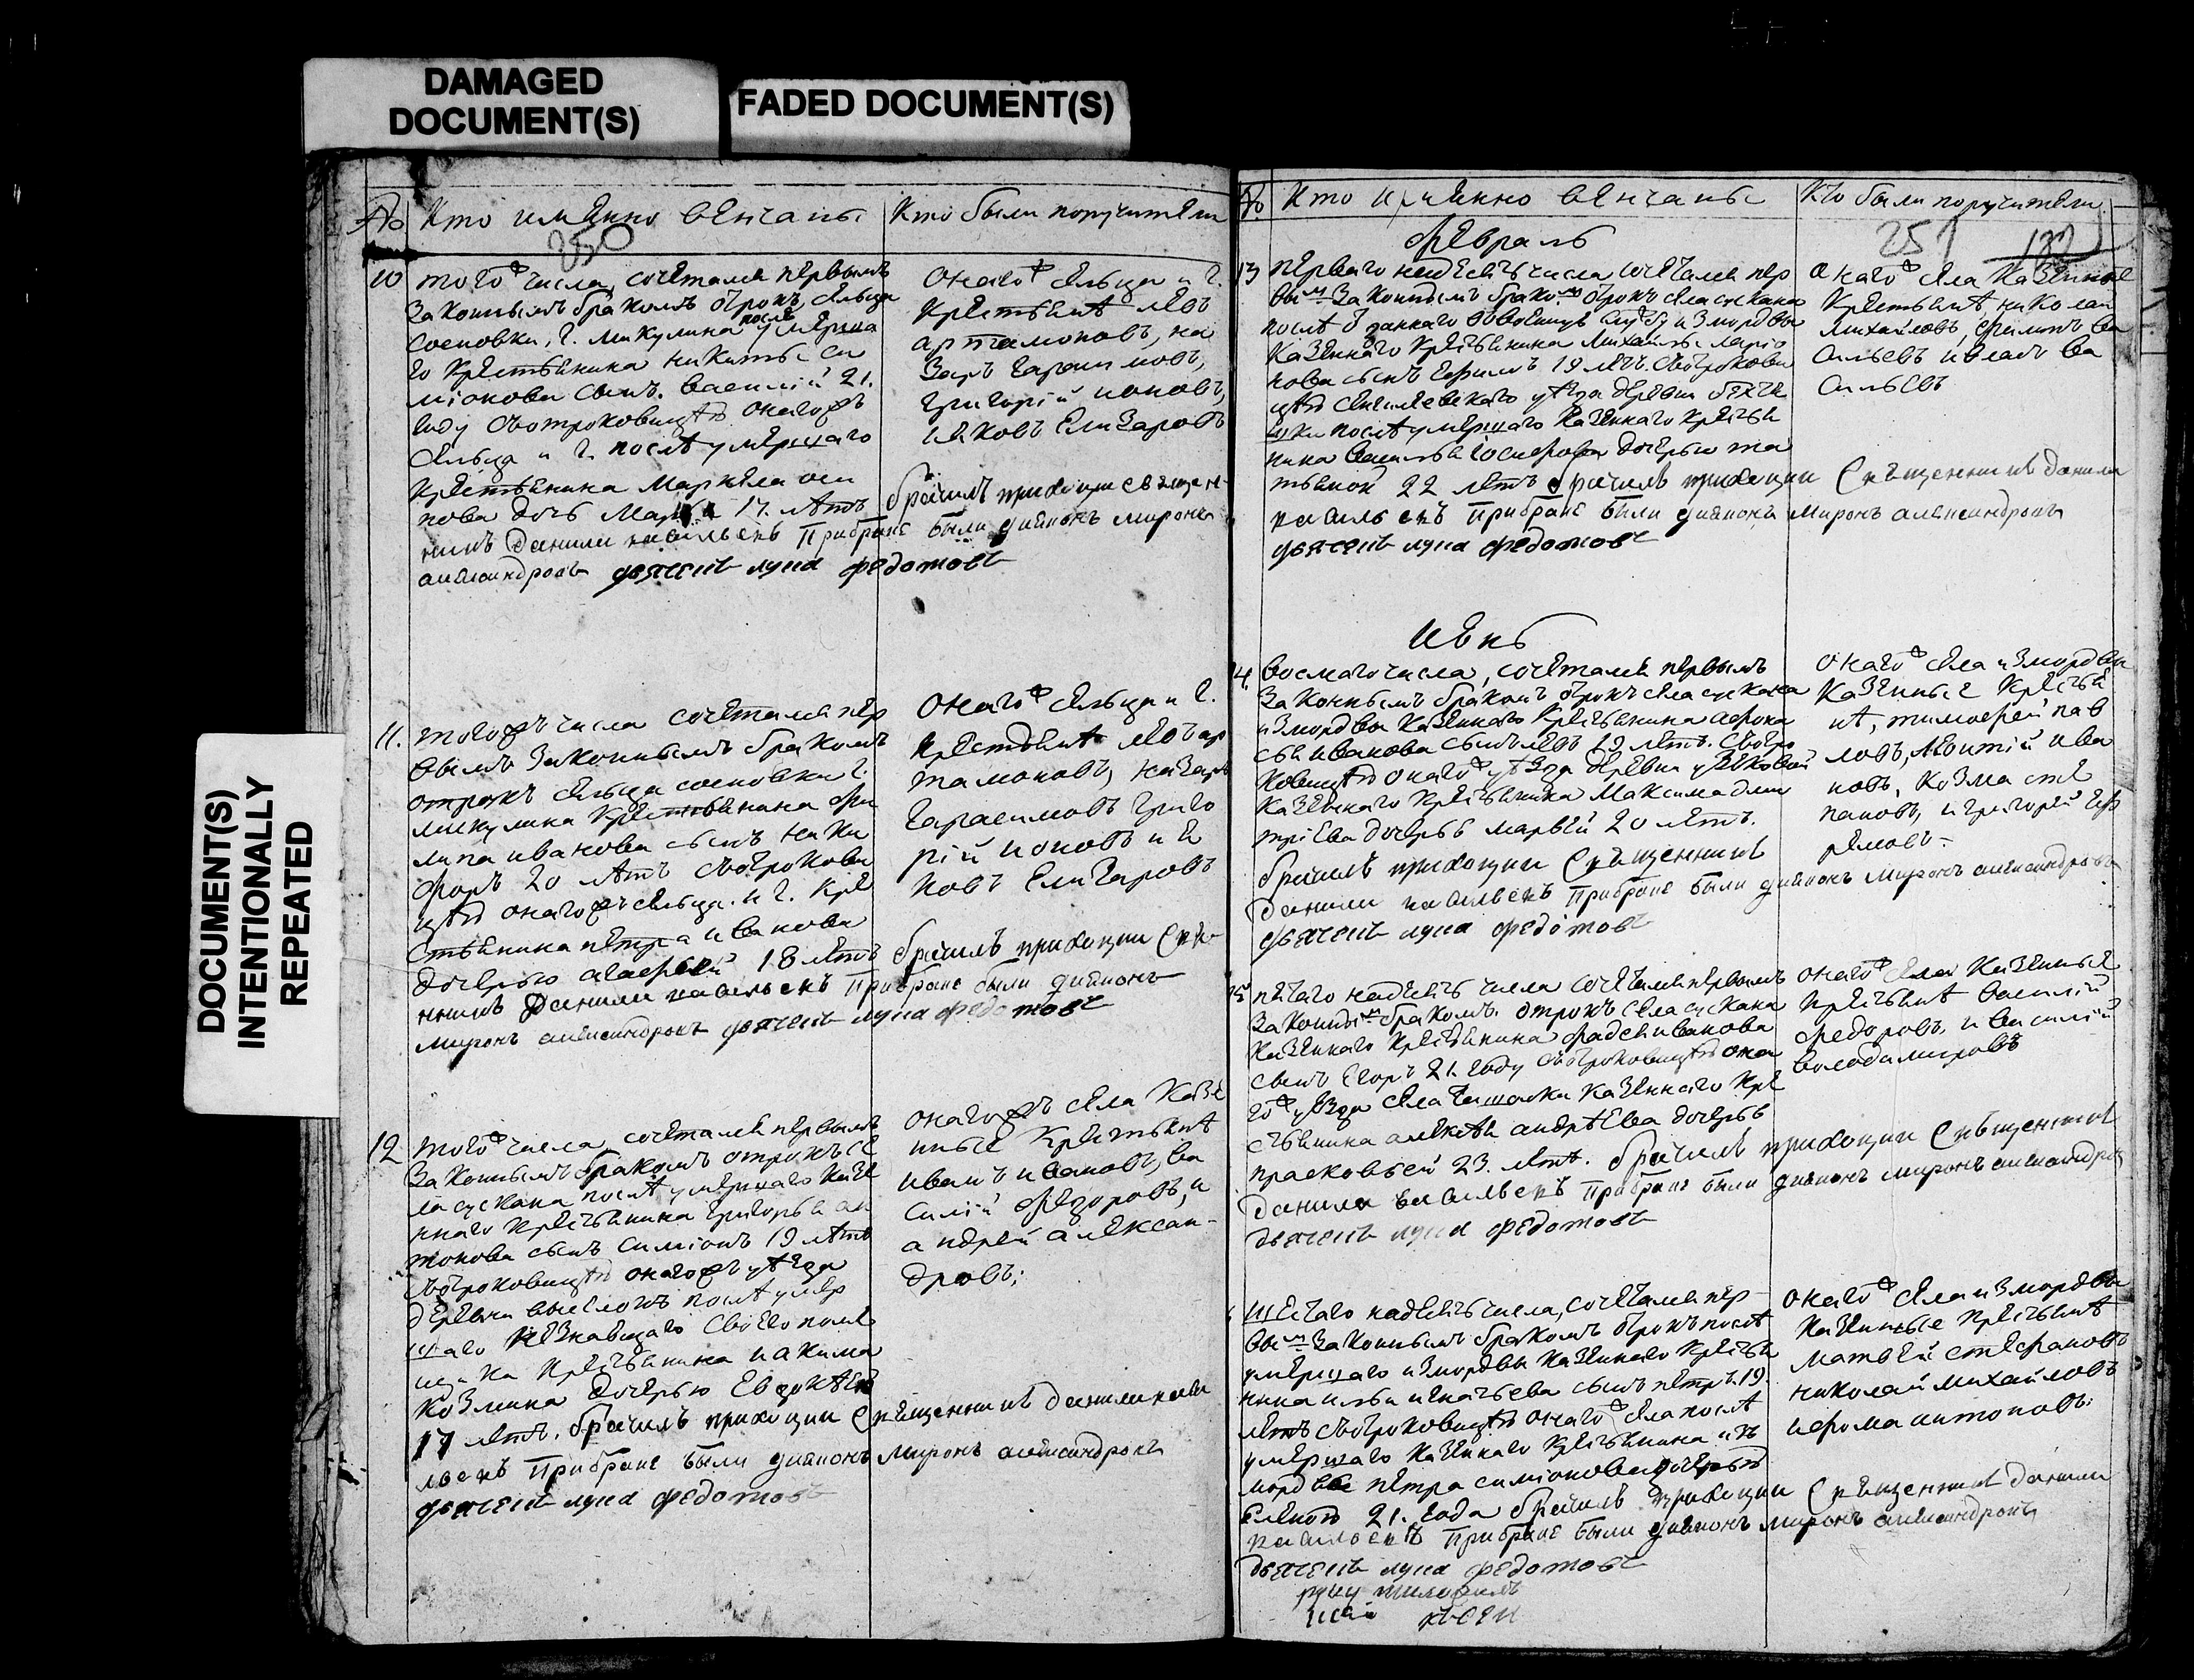 DAMAGED
DOCUMENT(S)
FADED DOCUMENT(S)
DOCUMENT(S)
INTENTIONALLY
REPEATED
№ Кто имянно венчаны
250
Кто были поручители
10 тогож числа, сочетался первымъ
законнымъ бракомъ отрокъ сельца
Сосновки, г. Микулина после умерша
го крестьянина Никиты Си
мионова сынъ Василий 21.
году съ отроковицею онагожъ
сельца и г. после умершаго
крестьянина Маркела оси
пова дочь 17. летъ
бračилъ приходский священ
никъ Данила Васильевъ При браке были диаконъ Миронъ
александровъ дьячекъ Лука Федотовъ
онагож сельца и г.
крестьяне Левъ
артамоновъ, на
заръ Гарасимовъ,
Григорий Ионовъ,
Иаковъ Елизаровъ
11. тогожъ числа сочетался пер
вымъ законнымъ бракомъ
отрокъ сельца сосновки г.
микулина крестьянина Фи
липа иванова сынъ Ники
форъ 20 летъ съ отрокови
цею онагожъ сельца. и г. кре
стьянина петра иванова
дочерью агафьей 18 летъ
никъ Данила Васильевъ При браке были диаконъ
Миронъ александровъ дьячекъ Лука Федотовъ
онагож сельца и г.
крестьяне Левъ ар
тамоновъ, Назаръ
Гарасимовъ Григо
рий Ионовъ и Иа
ковъ Елизаровъ
12 тогож числа, сочетался первымъ
законнымъ бракомъ отрокъ се
ла сускана после умершаго казе
ннаго крестьянина Григорья ан
тонова сынъ Симионъ 19 летъ
съ отроковицею онагожъ уезда
деревни выселокъ после умер
шаго незнающаго своего поме
щика крестьянина иакима
козмина дочерью Евдокѣею
17 летъ. приходский священникъ Данила Васи
льевъ При браке были диаконъ Миронъ александровъ
дьячекъ Лука Федотовъ
онагожъ села Казе
нные крестьяне
иванъ ивановъ, ва
силий Федоровъ, и
андрей алексан-
дровъ;
№ Кто имянно венчаны
Кто были поручители
251
Февраль
13 перваго надесять числа сочетался пер
вымъ законнымъ бракомъ отрокъ села сускана
после отданнаго въ военную службу из мордвы
казеннаго крестьянина Михайлы Ларио
нова сынъ Ефимъ 19 летъ. съ отрокови
цею уезда деревни
после умершаго казеннаго крестья
нина Василья иосифова дочерью та
тьяной 22 летъ приходский священникъ Данила
Васильевъ При браке были диаконъ Миронъ александровъ
дьячекъ Лука Федотовъ
онагож села Казенные
крестьяне, николай
михайловъ, филипъ ва
сильевъ и власъ ва
сильевъ
Июнь
14. восмаго числа, сочетался первымъ
законнымъ бракомъ отрокъ села сускана
из мордвы казеннаго крестьянина афона
сья иванова сынъ левъ 19 летъ. съ отро
ковицею онагож уезда деревни узюковой
казеннаго крестьянина Максима дми
триева дочерью марьей 20 летъ.
приходский священникъ
Данила Васильевъ При браке были диаконъ Миронъ александровъ
дьячекъ Лука Федотовъ
онагож села из мордвы
казенные крестья
не, тимофей пав
ловъ, леонтий ива
новъ, козма сте
пановъ, и григорей еф
ремовъ.
15 пятаго надесять числа сочетался первымъ
законнымъ бракомъ. отрокъ села сускана
казеннаго крестьянина фадея иванова
сынъ Егоръ 21. году съ отроковицею она
гож уезда села ташолки казеннаго кре
стьянина алексея андреева дочерью
прасковьей 23. летъ. приходский священникъ
Данила Васильевъ При браке были диаконъ Миронъ александровъ
дьячекъ Лука Федотовъ
онагож села казенные
крестьяне василий
федоровъ, и василий
володимировъ
шестаго надесять числа, сочетался пер
вымъ законнымъ бракомъ отрокъ после
умершаго из мордвы казеннаго крестья
нина ильи игнатьева сынъ петръ 19.
летъ съ отроковицею онагож села после
умершаго казеннаго крестьянина из
мордвы петра симионова дочерью
Еленою 21. года приходский священникъ Данила
Васильевъ При браке были диаконъ Миронъ александровъ
дьячекъ Лука Федотовъ
руку приложилъ
онагож села из мордвы
казенные крестьяне
матвей стефановъ
николай михайловъ
и фома антоновъ.